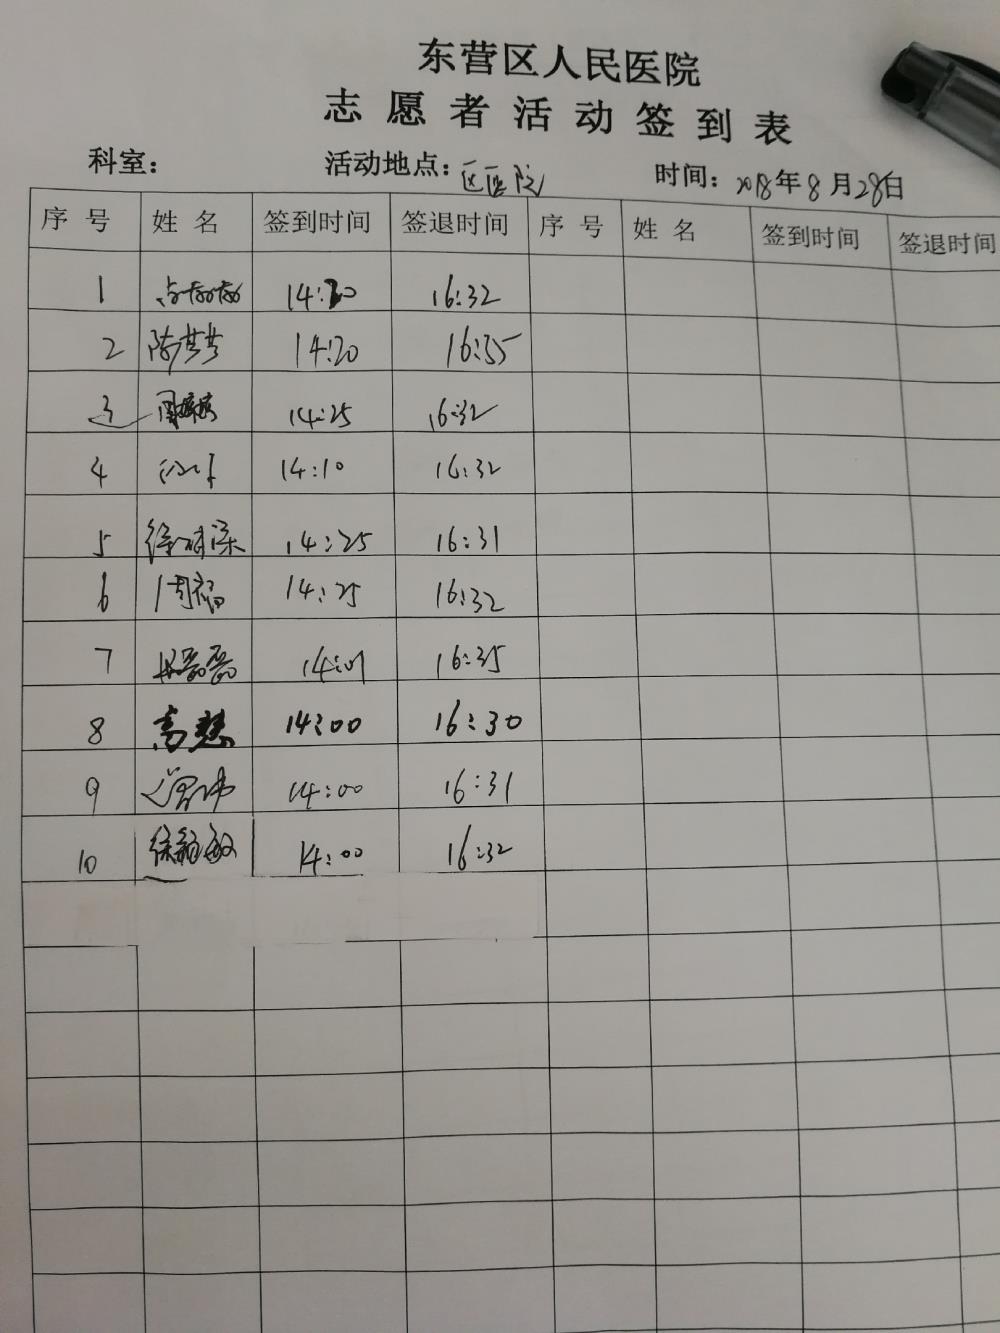 东营区人民医院
志愿者活动签到表
科室： 活动地点：区医院 时间：2018年8月28日
序号 姓名 签到时间 签退时间 序号 姓名 签到时间 签退时间
1 14:20 16:32
2 陈梦梦 14:20 16:35
3 14:25 16:32
4 14:10 16:32
5 14:25 16:31
6 周福 14:25 16:32
7 14:01 16:35
8 高慧 14:00 16:30
9 14:00 16:31
10 徐毓敏 14:00 16:32